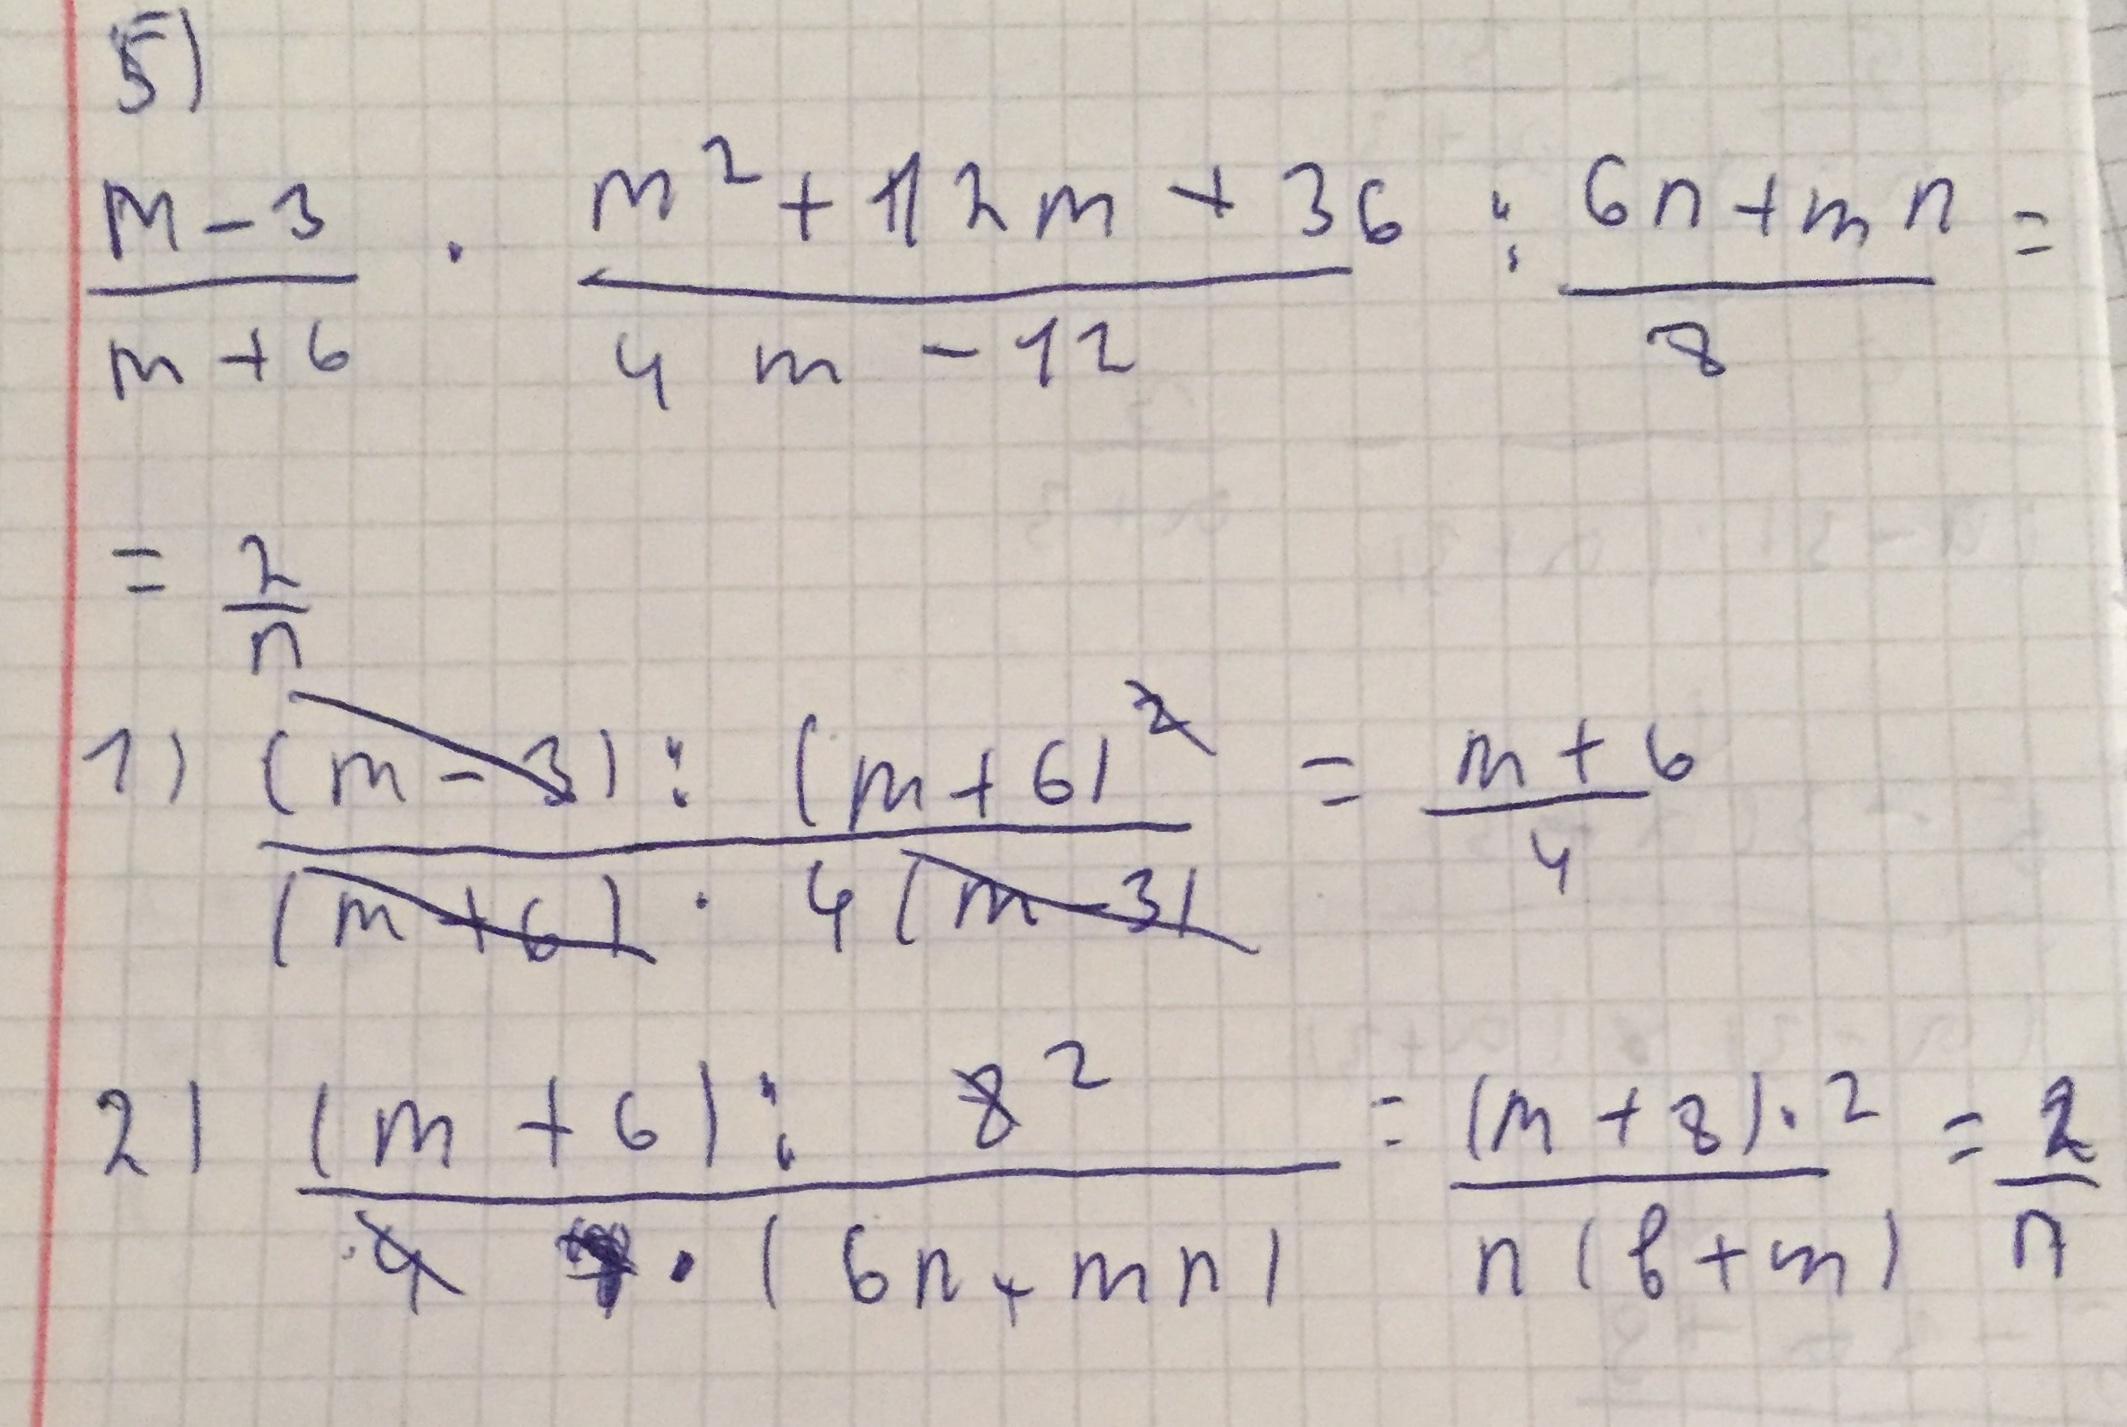 5)
(m-3)/(m+6) · (m²+12m+36)/(4m-12) : (6n+mn)/8 =
= 2/n
1) ((m-3) : (m+6)²)/((m+6) · 4(m-3)) = (m+6)/4
2) ((m+6) : 8 ²)/(4 · (6n+mn)) = ((m+8)·2)/(n(6+m)) = 2/n